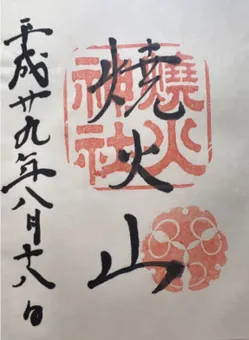 燒火山
燒火
神社
平成廿九年八月十八日